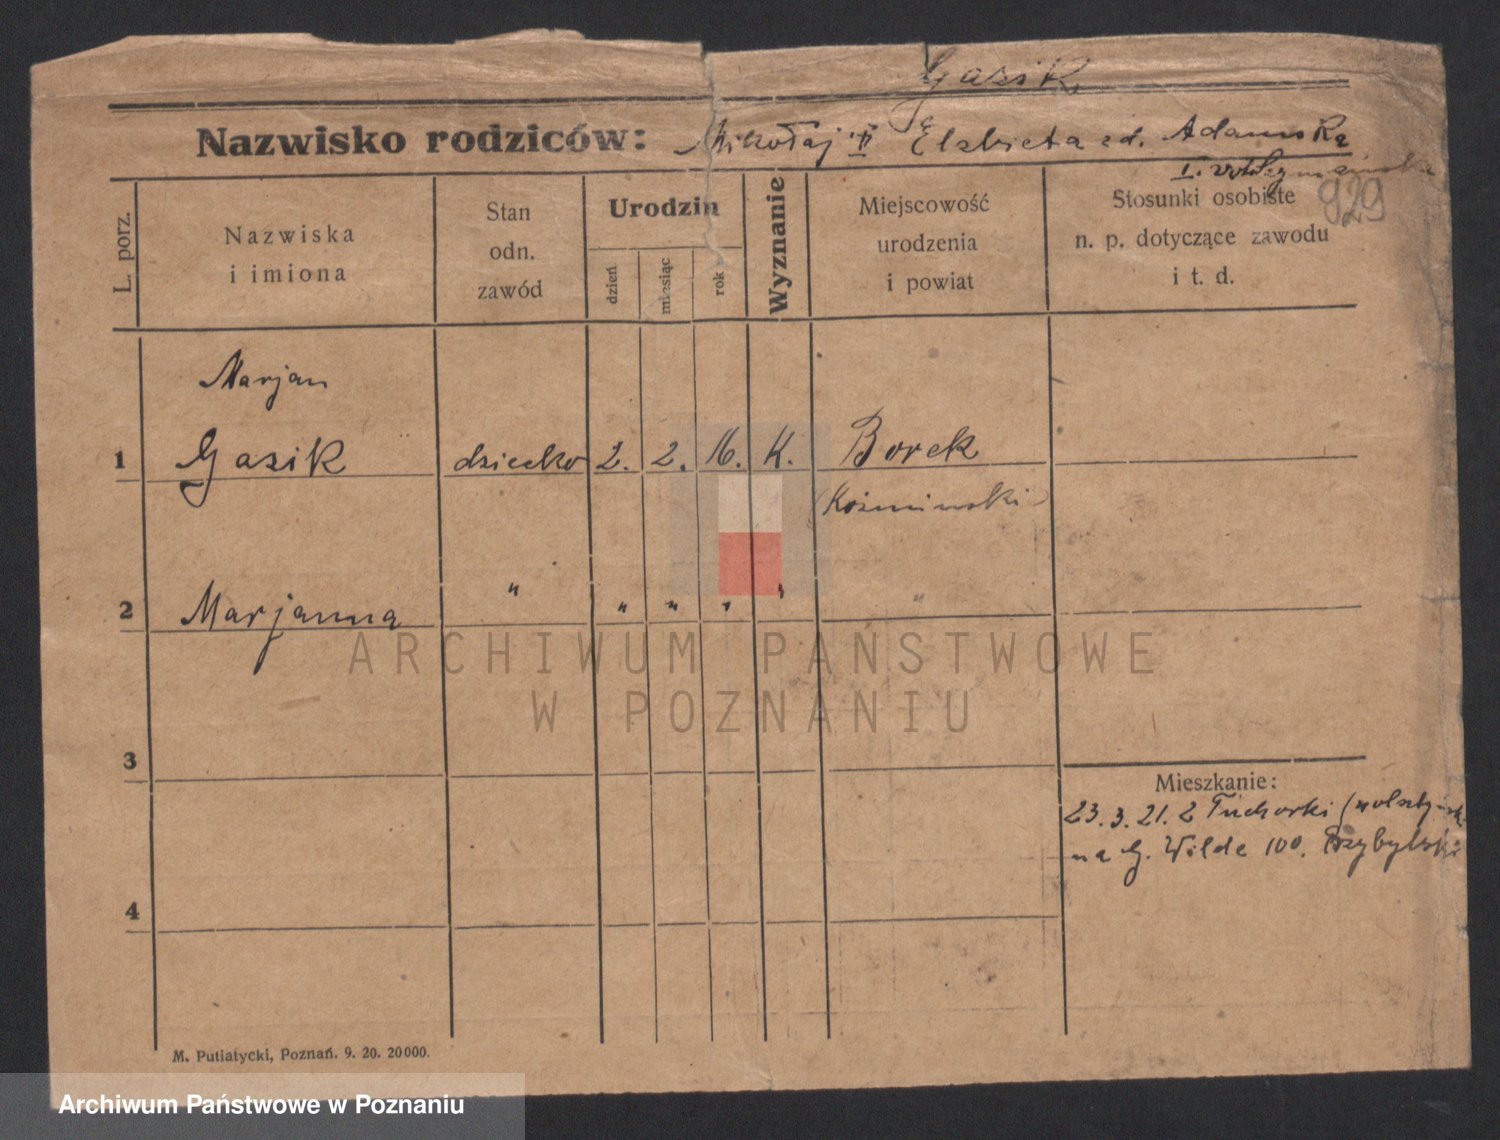 Gasik
Nazwisko rodziców: Mikołaj i Elżbieta zd. Adamska
I. voto
929
L. porz.
Nazwiska
i imiona
Stan
odn.
zawód
Urodzin
dzień
miesiąc
rok
Wyznanie
Miejscowość
urodzenia
i powiat
Stosunki osobiste
n. p. dotyczące zawodu
i t. d.
Marjan
1 Gasik dziecko 2. 2. 16. K. Borek
(Koźminski)
2 Marjanna " " " " " "
ARCHIWUM PAŃSTWOWE
W POZNANIU
3
Mieszkanie:
23. 3. 21. z Tuchorki
na G. Wilde 100. Przybylski
4
M. Putiatycki, Poznań. 9. 20. 20000.
Archiwum Państwowe w Poznaniu